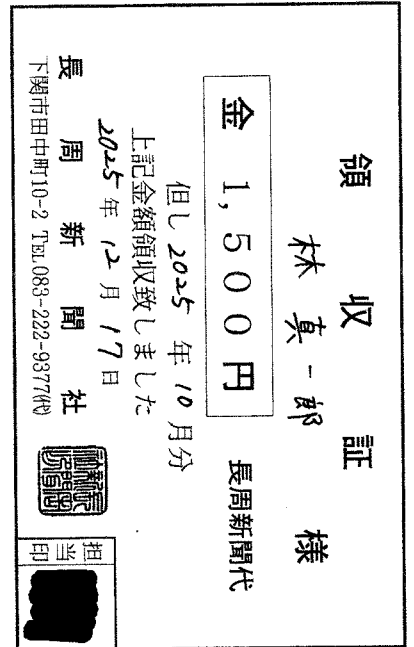 領収証
林真一郎 様
金 1,500円
長周新聞代
但し 2025 年 10 月分
上記金額領収致しました
2025 年 12 月 17 日
長周新聞社
下関市田中町10-2 TEL083-222-9377㈹
担当印